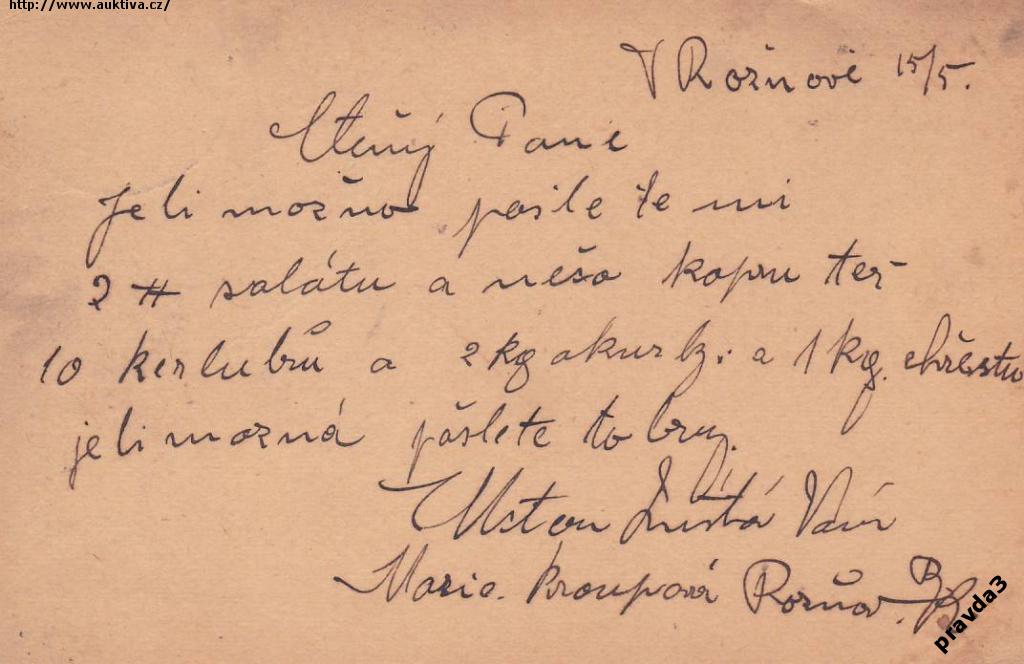 http://www.auktiva.cz/
V Rožnově 15/5.
Ctěný Pane
Je li možno pošlete mi
2 # salátu a něšo kopru též
10 kerlubrů a 2 kg okurk. a 1 kg. chřestu
je li možná pošlete to brzy.
Marie. Kroupová Rožnov.
pravda3